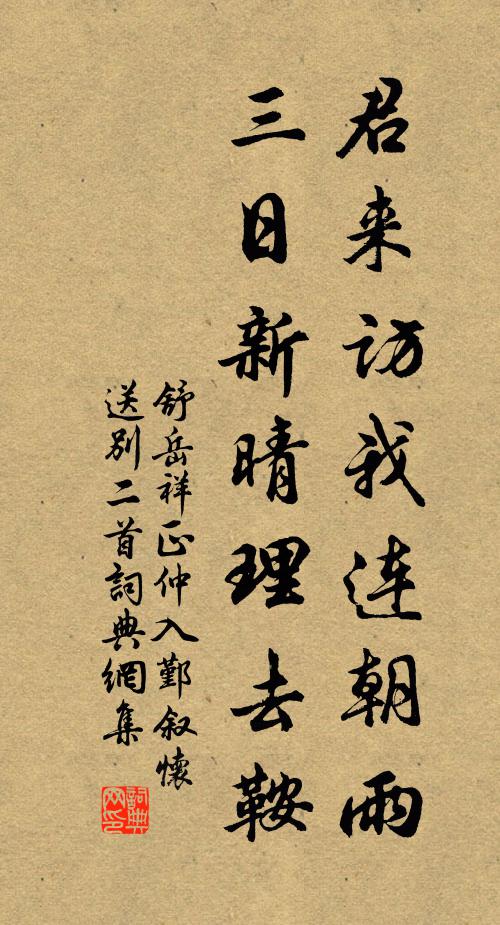 君来访我连朝雨
三日新晴理去鞍
舒岳祥正仲入鄞叙懷
送别二首詞典網集
詞典網印